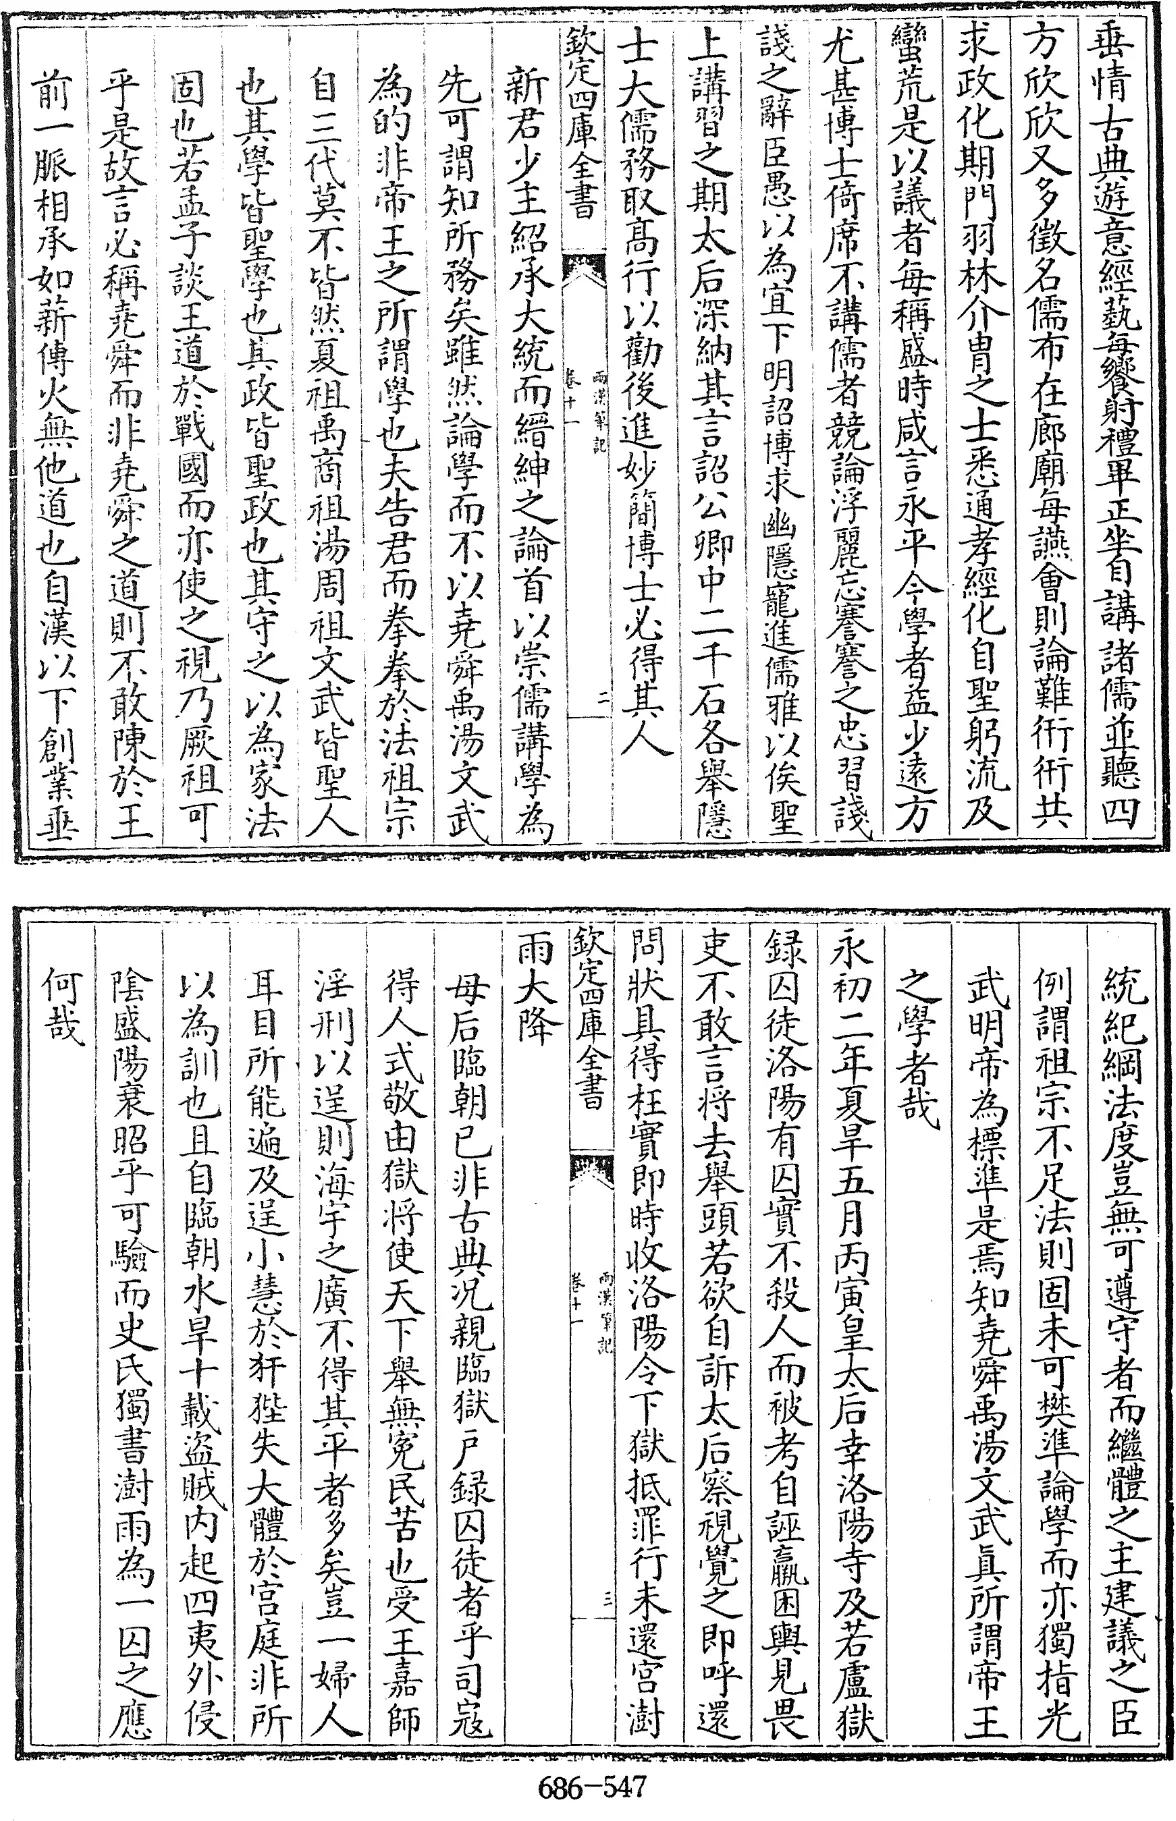 垂情古典遊意經藝每饗射禮畢正坐自講諸儒並聽四
方欣欣又多徵名儒布在廊廟每讌會則論難衎衎共
求政化期門羽林介胄之士悉通孝經化自聖躬流及
蠻荒是以議者每稱盛時咸言永平今學者益少遠方
尤甚博士倚席不講儒者競論浮麗忘謇謇之忠習諓
諓之辭臣愚以為宜下明詔博求幽隱寵進儒雅以俟聖
上講習之期太后深納其言詔公卿中二千石各舉隱
士大儒務取髙行以勸後進妙簡博士必得其人
欽定四庫全書
兩漢筆記
卷十一
二
新君少主紹承大統而縉紳之論首以崇儒講學為
先可謂知所務矣雖然論學而不以堯舜禹湯文武
為的非帝王之所謂學也夫告君而拳拳於法祖宗
自三代莫不皆然夏祖禹商祖湯周祖文武皆聖人
也其學皆聖學也其政皆聖政也其守之以為家法
固也若孟子談王道於戰國而亦使之視乃厥祖可
乎是故言必稱堯舜而非堯舜之道則不敢陳於王
前一脈相承如薪傳火無他道也自漢以下創業垂
統紀綱法度豈無可遵守者而繼體之主建議之臣
例謂祖宗不足法則固未可樊準論學而亦獨指光
武明帝為標準是焉知堯舜禹湯文武真所謂帝王
之學者哉
永初二年夏旱五月丙寅皇太后幸洛陽寺及若盧獄
録囚徒洛陽有囚實不殺人而被考自誣羸困輿見畏
吏不敢言將去舉頭若欲自訴太后察視覺之即呼還
問狀具得枉實即時收洛陽令下獄抵罪行未還宫澍
雨大降
欽定四庫全書
兩漢筆記
卷十一
三
母后臨朝已非古典况親臨獄戶録囚徒者乎司寇
得人式敬由獄將使天下舉無冤民苦也受王嘉師
淫刑以逞則海宇之廣不得其平者多矣豈一婦人
耳目所能遍及逞小慧於犴狴失大體於宫庭非所
以為訓也且自臨朝水旱十載盜賊内起四夷外侵
陰盛陽衰昭乎可驗而史氏獨書澍雨為一囚之應
何哉
686-547